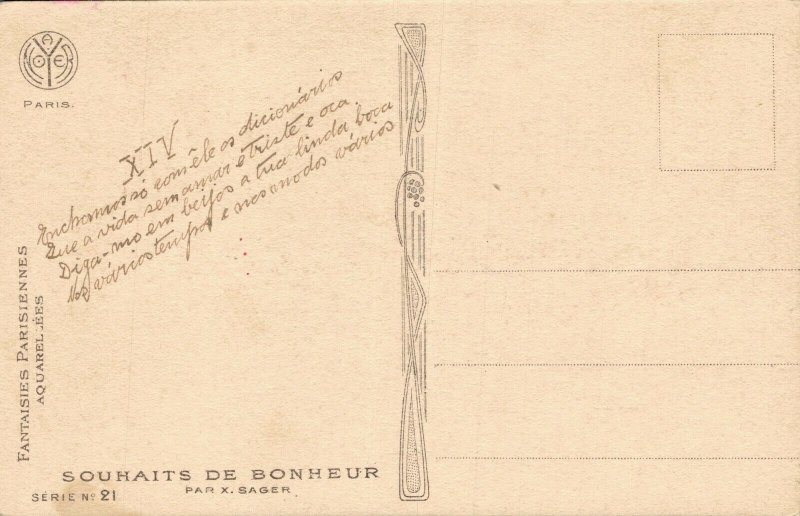 NOYER
PARIS.
XIV
Enchamos só com êle os dicionários
Que a vida sem amar é triste e oca
Diga-mo em beijos a tua linda boca
Nos vários tempos e nos modos vários
FANTAISIES PARISIENNES
AQUARELLÉES
SOUHAITS DE BONHEUR
PAR X. SAGER.
SÉRIE Nº 21